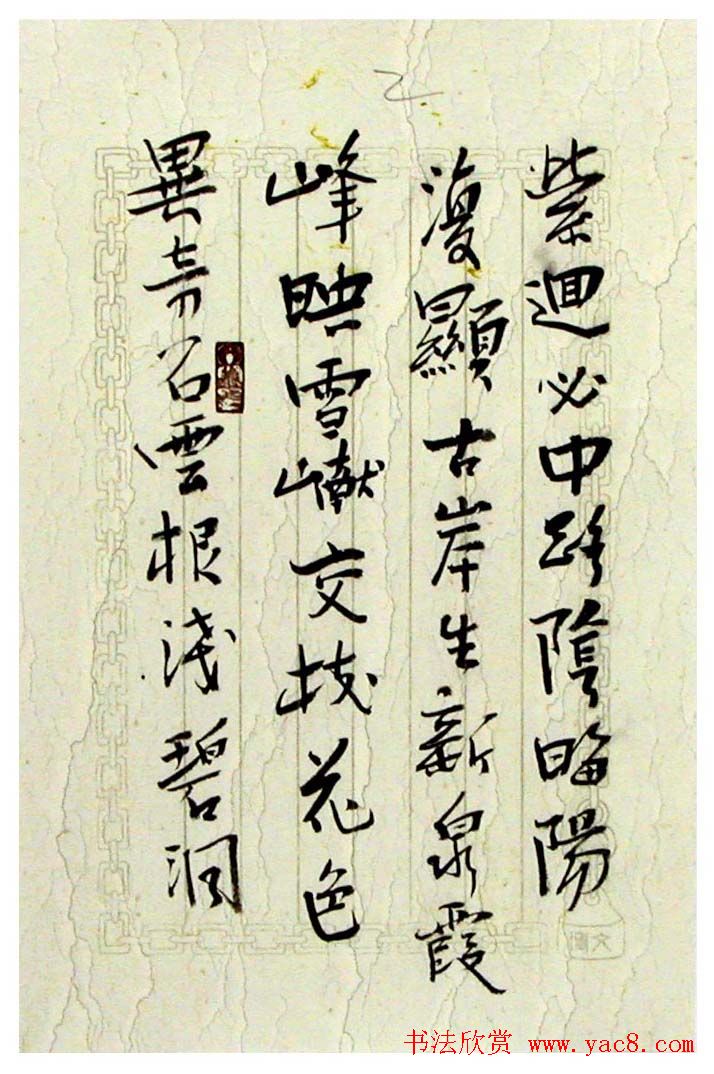 縈迴必中路陰晦陽
復顯古岸生新泉霞
峰暎雪巘交枝花色
異奇石雲根淺碧洞
书法欣赏 www.yac8.com